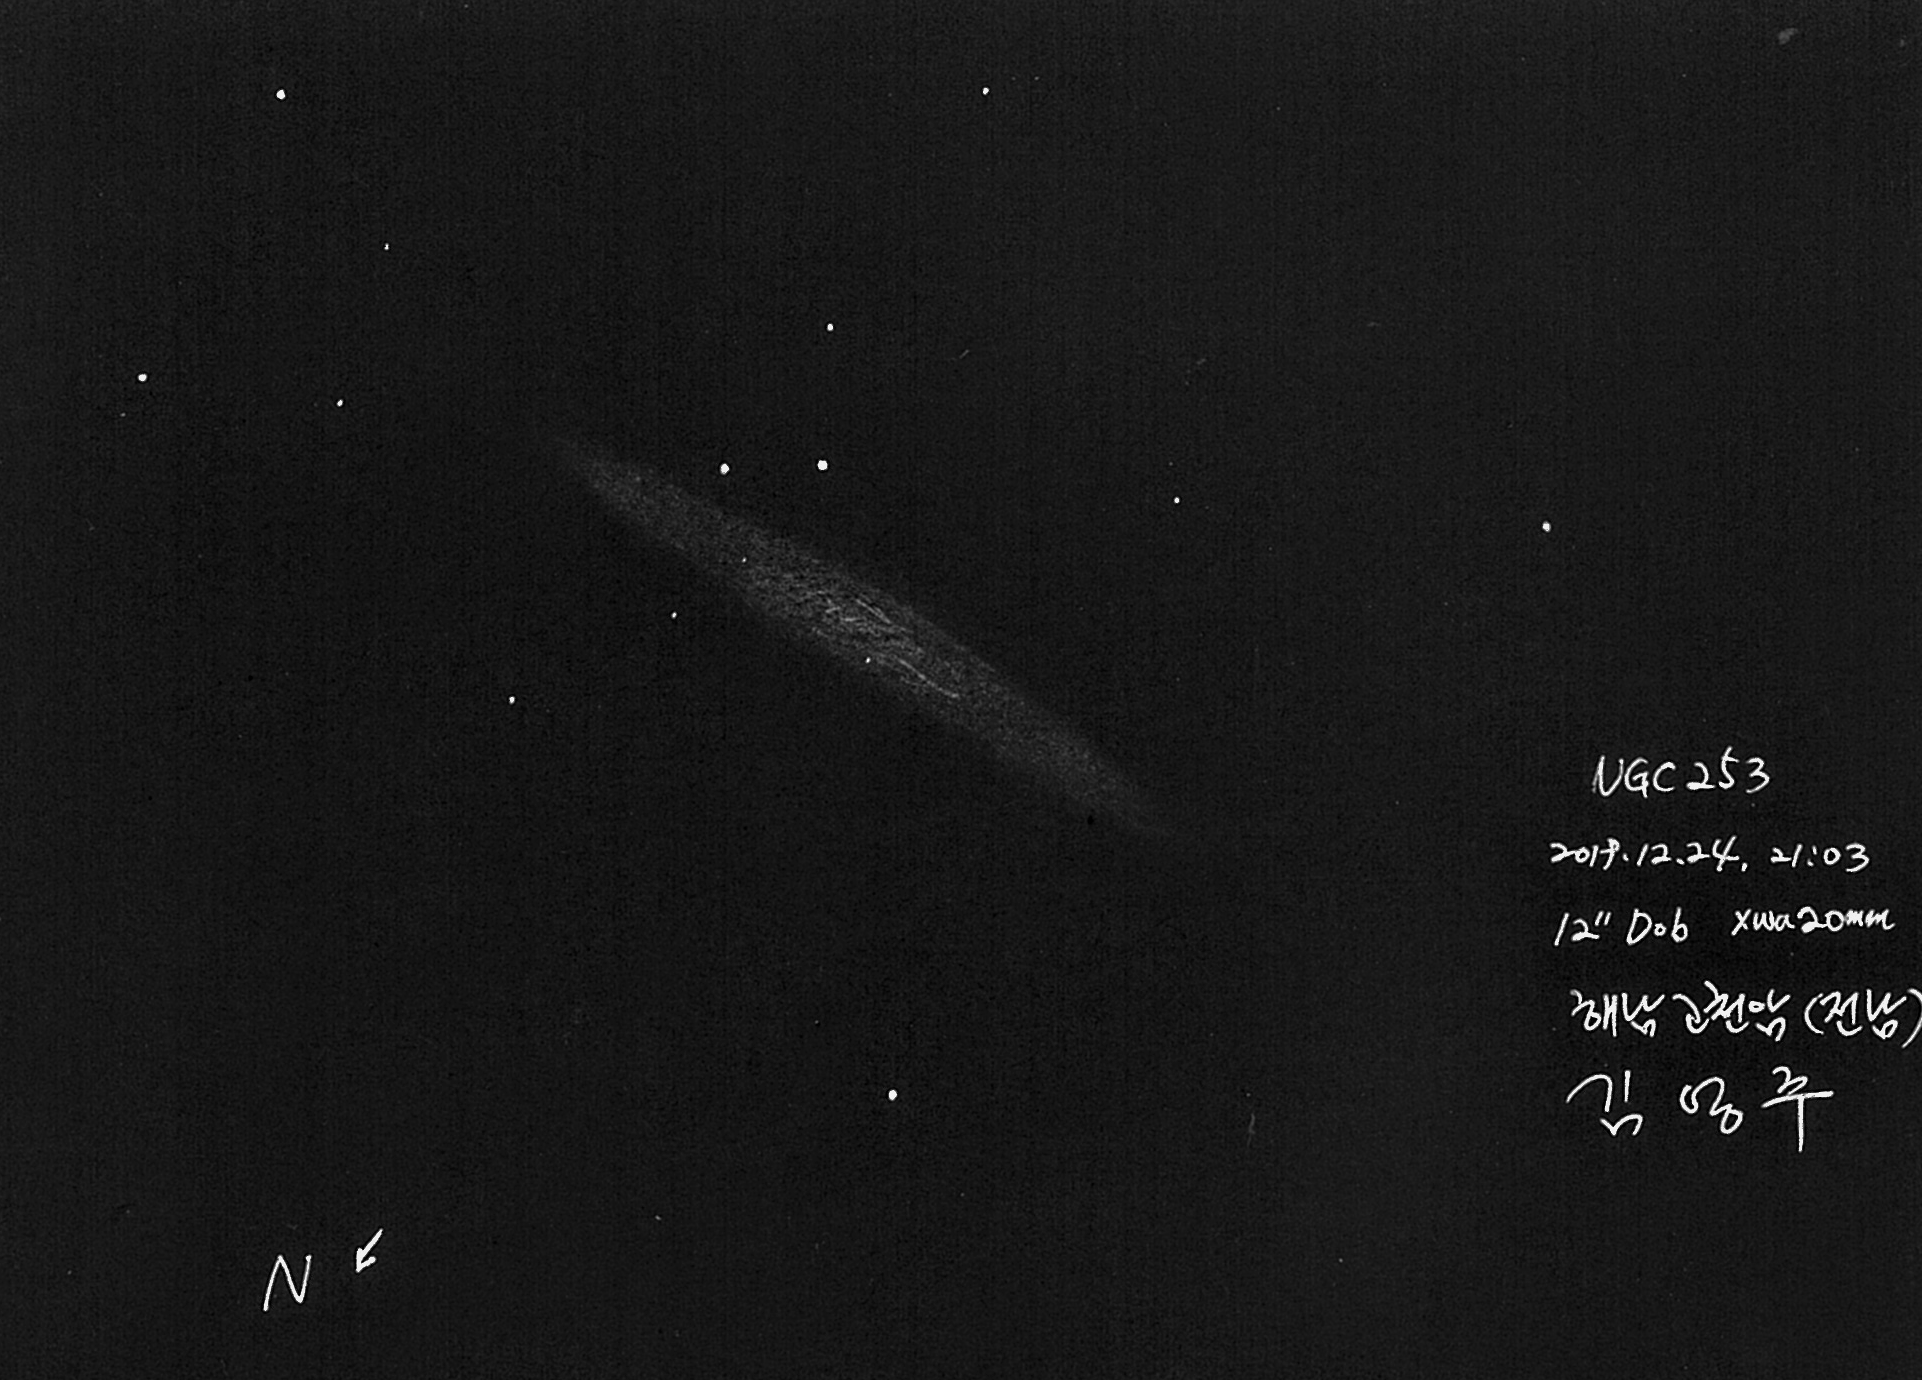 NGC 253
2019.12.24. 21:03
12" Dob xwa20mm
해남 고천암 (전남)
김 영 주
N